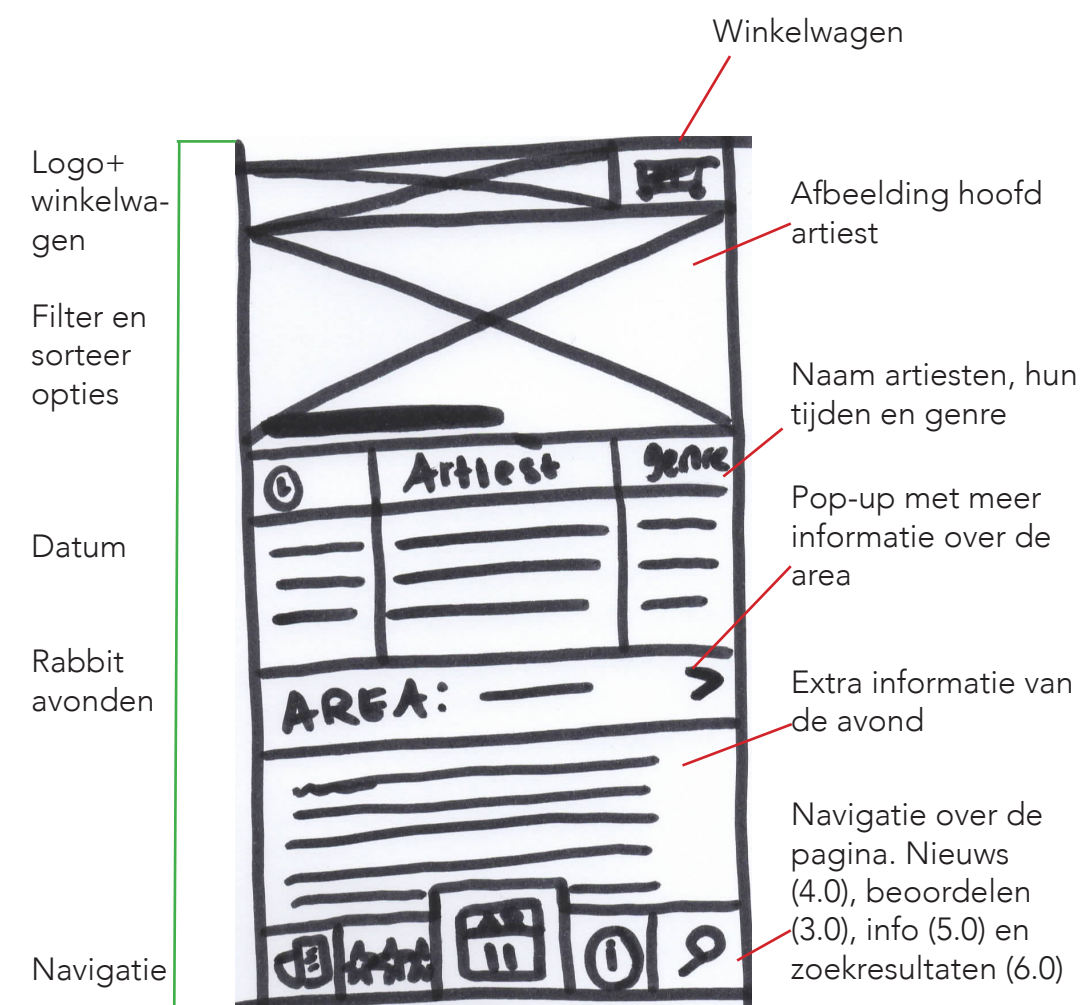 Winkelwagen
Logo+
winkelwa-
gen
Filter en
sorteer
opties
Datum
Rabbit
avonden
Navigatie
Artiest
genre
AREA:
Afbeelding hoofd
artiest
Naam artiesten, hun
tijden en genre
Pop-up met meer
informatie over de
area
Extra informatie van
de avond
Navigatie over de
pagina. Nieuws
(4.0), beoordelen
(3.0), info (5.0) en
zoekresultaten (6.0)